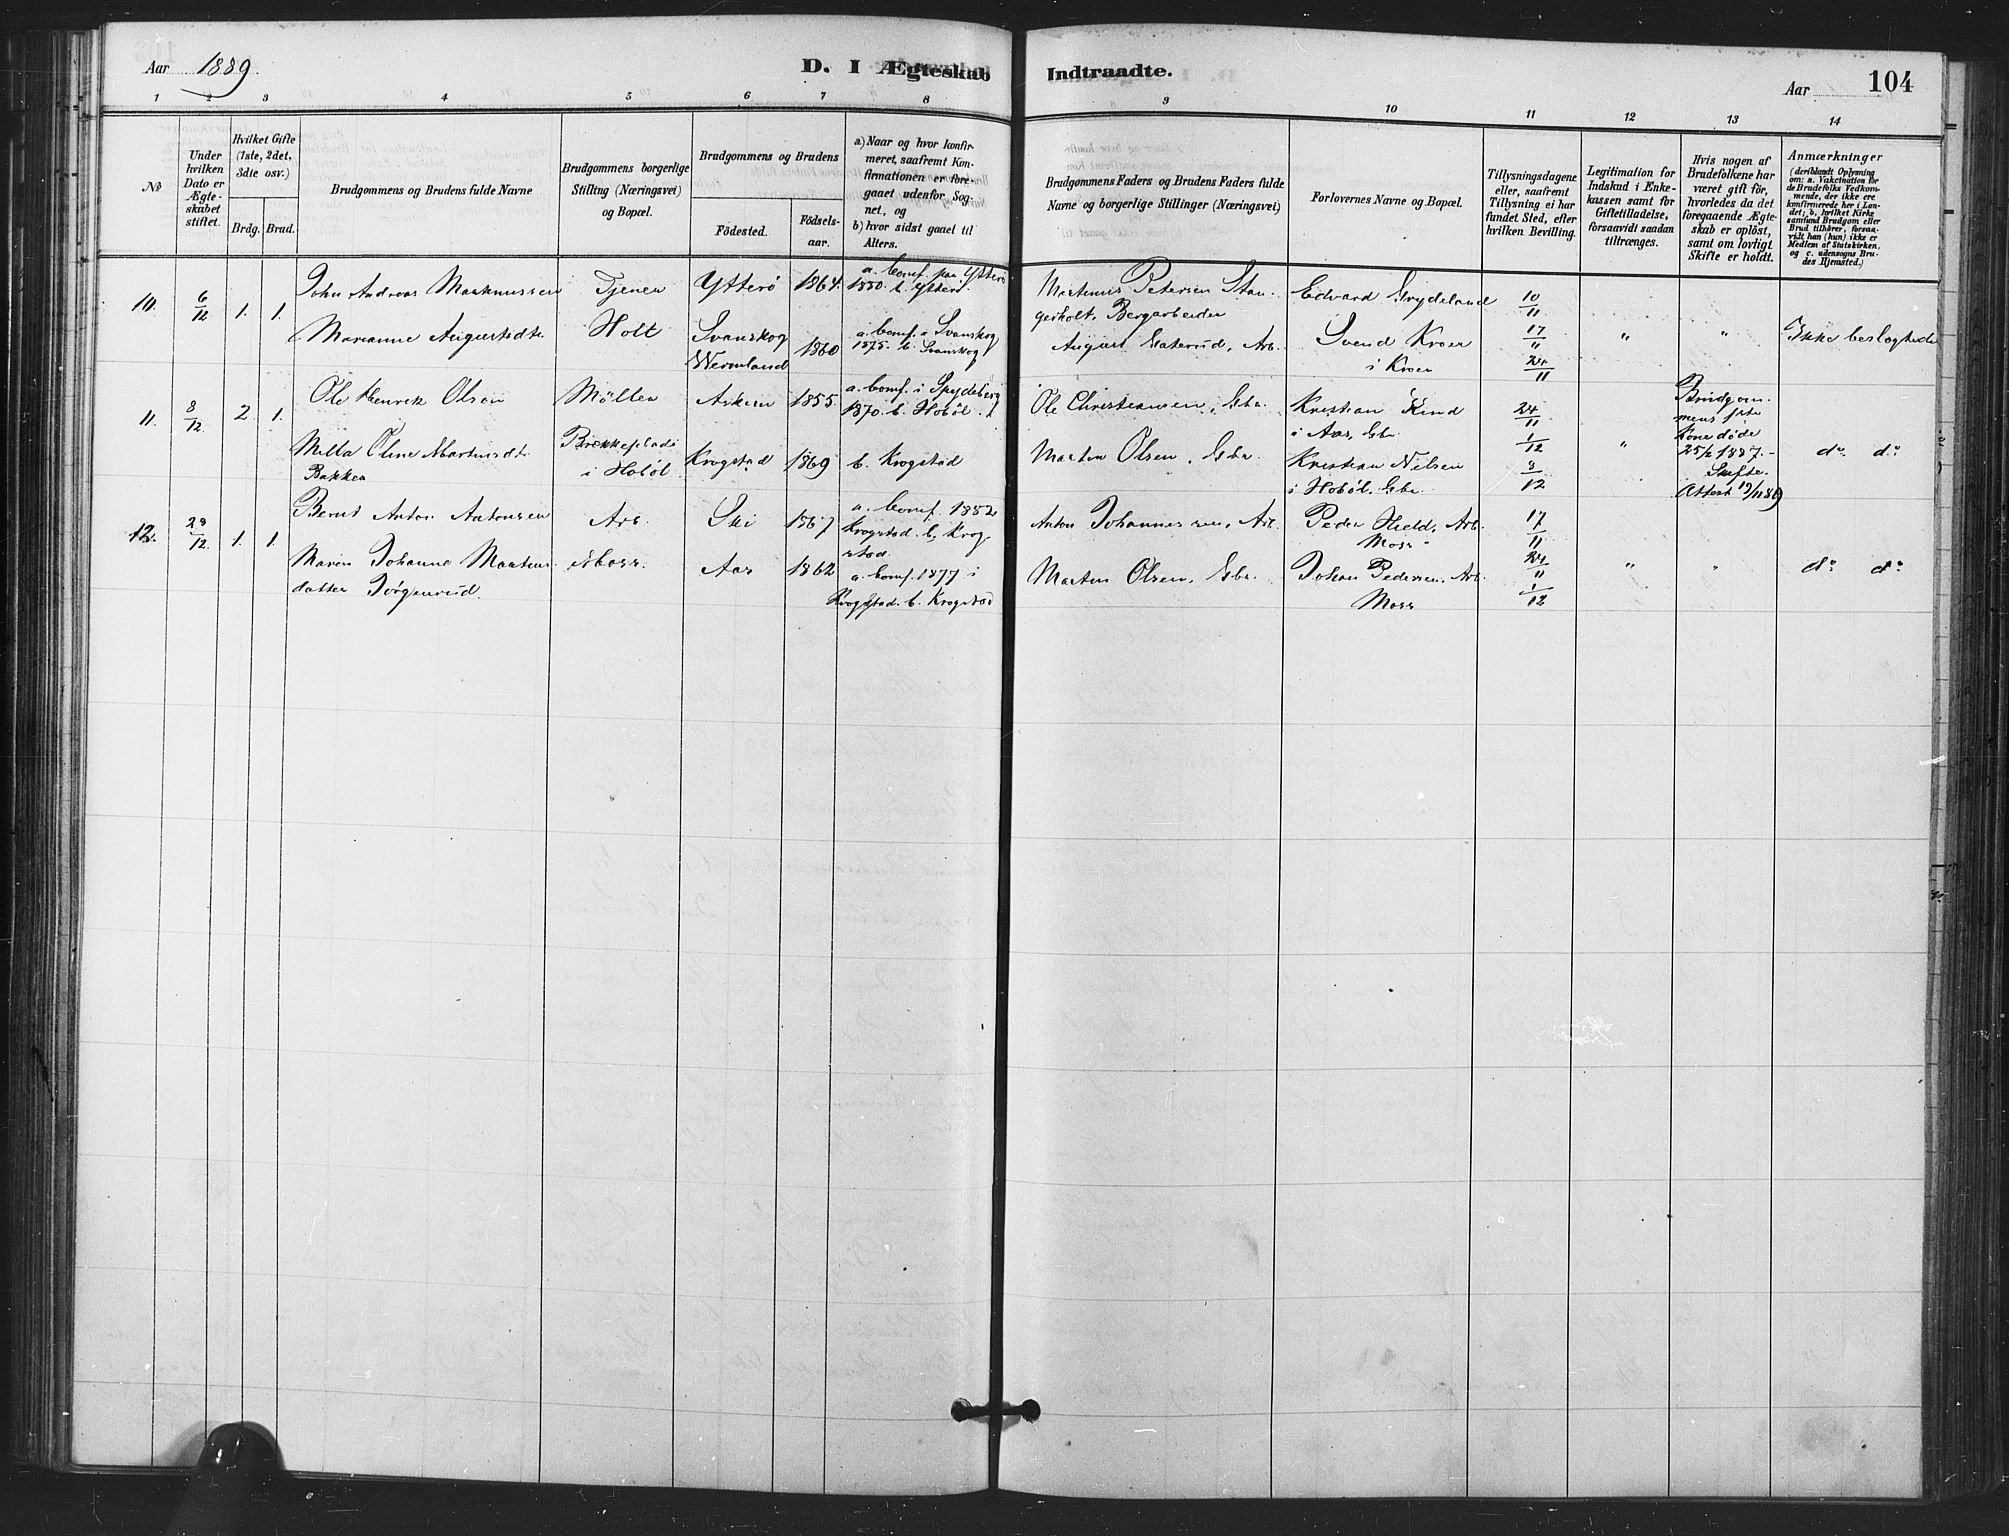 Aar 1889.
D. I Ægteskab Indtraadte.
Aar 104
1 2 3 4 5 6 7 8 9 10 11 12 13 14
No
Under hvilken Dato er Ægteskabet stiftet.
Hvilket Gifte (1ste, 2det, 3die osv.)
Brdg. Brud.
Brudgommens og Brudens fulde Navne
Brudgommens borgerlige Stilling (Næringsvei) og Bopæl.
Brudgommens og Brudens
Födested.
Födsels-aar.
a) Naar og hvor konfirmeret, saafremt Konfirmationen er foregaaet udenfor Sognet, og
b) hvor sidst gaaet til Alters.
Brudgommens Faders og Brudens Faders fulde Navne og borgerlige Stillinger (Næringsvei)
Forlovernes Navne og Bopæl.
Tillysningsdagene eller, saafremt Tillysning ei har fundet Sted, efter hvilken Bevilling.
Legitimation for Indskud i Enkekassen samt for Giftetilladelse, forsaavidt saadan tiltrænges.
Hvis nogen af Brudefolkene har været gift för, hvorledes da det foregaaende Ægteskab er oplöst, samt om lovligt Skifte er holdt.
Anmærkninger
(deriblandt Oplysning om: a. Vakcination for de Brudefolks Vedkommende, der ikke ere konfirmerede her i Landet; b. hvilket Kirkesamfund Brudgom eller Brud tilhörer, forsaavidt han (hun) ikke er Medlem af Statskirken, og c. udensogns Brudes Hjemsted.)
10. 6/12 1. 1.
John Andreas
Tjener
Ytterö 1864.
a. Conf. paa Ytterö
1880. b. Ytterö.
Martinus Petersen Stan-
gerholt, Bergarbeider
Edvard Grydeland
10/11
Marianne Augustsdtr.
Holt
Svanskog
Wermland
1860
a. Conf. i Svanskog
1875. b. Svanskog
August Sæterud, Arb.
Svend Kroer
i Kroer
17/11
24/11
" "
Ikke beslægtede
11. 8/12 2. 1.
Ole Henrik Olsen
Möller
Askim 1855.
a. Conf. i Spydeberg
1870. b. Hoböl.
Ole Christiansen, Gbr.
Kristian Kind
i Aas, Gbr.
24/11
Brudgom-
mens 1ste
Kone döde
25/2 1887. -
Skifte-
Attest 19/11 89
Milla Oline Martinsdtr.
Bakken
Brekkeplads
i Hoböl
Krogstad 1869
b. Krogstad
Martin Olsen, Gbr.
Kristian Nilsen
i Hoböl, Gbr.
1/12
8/12
"
do do
12. 29/12 1. 1.
Bernt Anton Antonsen
Arb.
Ski 1867
a. Conf. 1882
Krogstad. b. Krog-
stad.
Anton Johannessen, Arb.
Peder Hield, Arb.
Moss.
17/11
Maren Johanne Martins-
datter Jörgenrud.
Moss.
Aas 1862
a. Conf. 1877 i
Krogstad. b. Krogstad
Martin Olsen, Gbr.
Johan Pedersen, Arb.
Moss
24/11
1/12
" "
do do